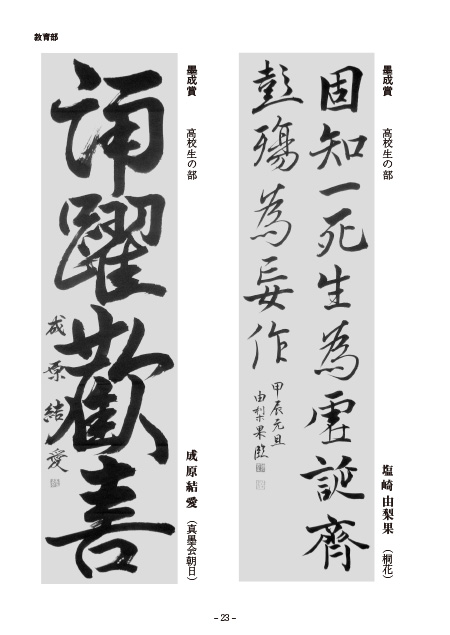 教育部
墨成賞　高校生の部
塩崎由梨果（桐花）
固知一死生為虛誕齊
彭殤為妄作
甲辰元旦
由梨果臨
墨成賞　高校生の部
成原結愛（真墨会朝日）
踊躍歡喜
成原結愛
– 23 –